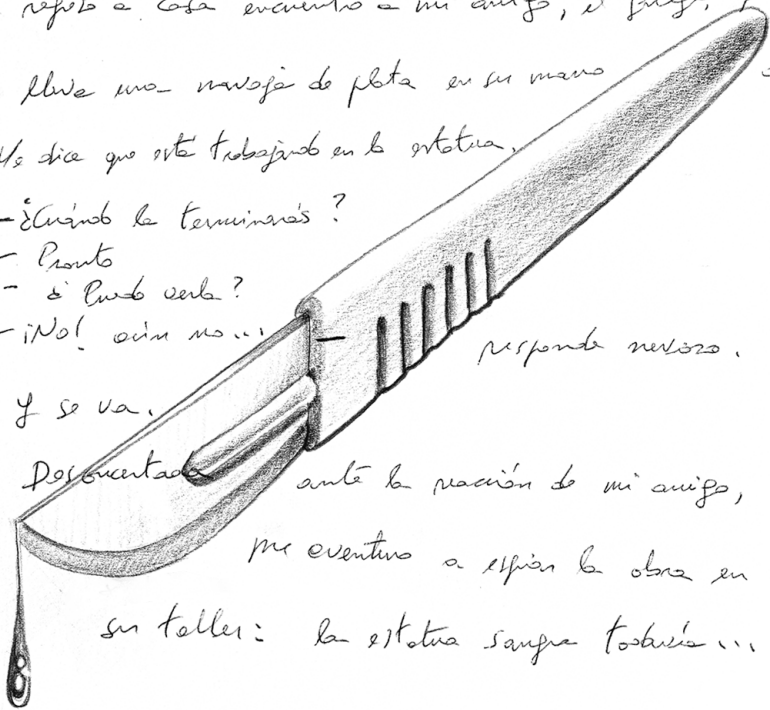 regreso a casa encuentro a mi amigo, el
lleva una navaja de plata en su mano
Me dice que está trabajando en la estatua.
- ¿Cuándo la terminarás?
- Pronto
- ¿Puedo verla?
- ¡No! aún no... responde nervozo.
Y se va.
Desconcertada ante la reacción de mi amigo,
me aventuro a espiar la obra en
su taller: la estatua sangra todavía...